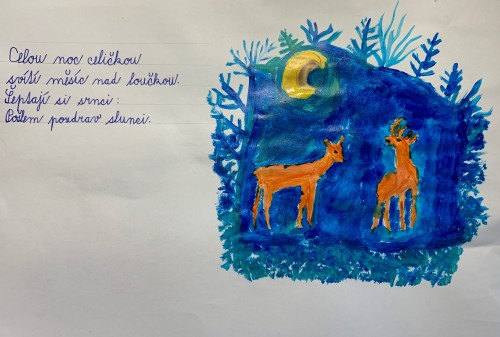 Celou noc celičkou
svítí měsíc nad loučkou.
Šeptají si srnci:
Pošlem pozdrav slunci.